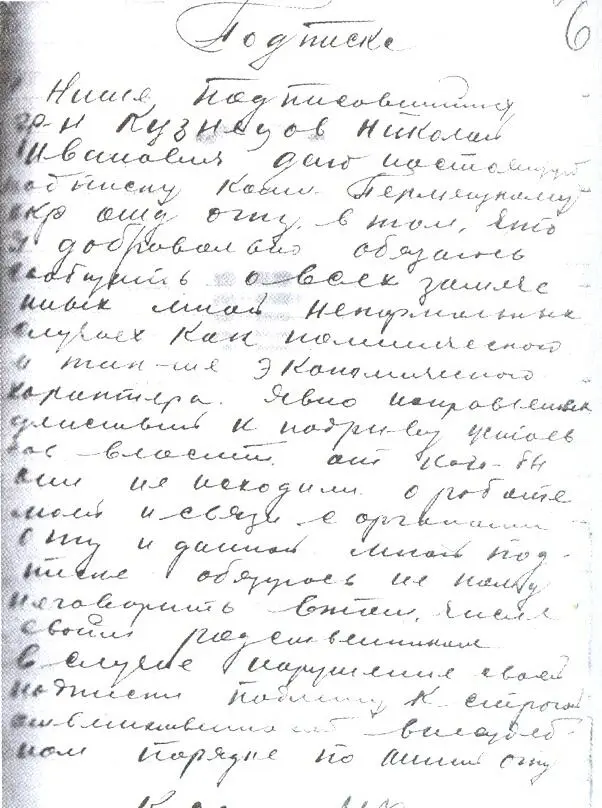 6
Подписка
Я Ниже подписовшийся
гр-н Кузнецов Николай
Иванович даю настоящую
подписку Коми Пермяцкому
окр отд огпу, в том, что
я добровольно обязуюсь
сообщать о всех замече
нных мной ненормальных
случаех как политического
и так-же экономического
характера. Явно направленых
к подрыву устоев
сов власти. от кого-бы
они не исходили. о работе
моей и связи с органами
огпу и данной мной под-
писке обязуюсь не кому
неговорить втом, числе
своим родственникам
в случае нарушения своей
подписки подлежу к строгой
внесудеб-
ном порядке по линии огпу